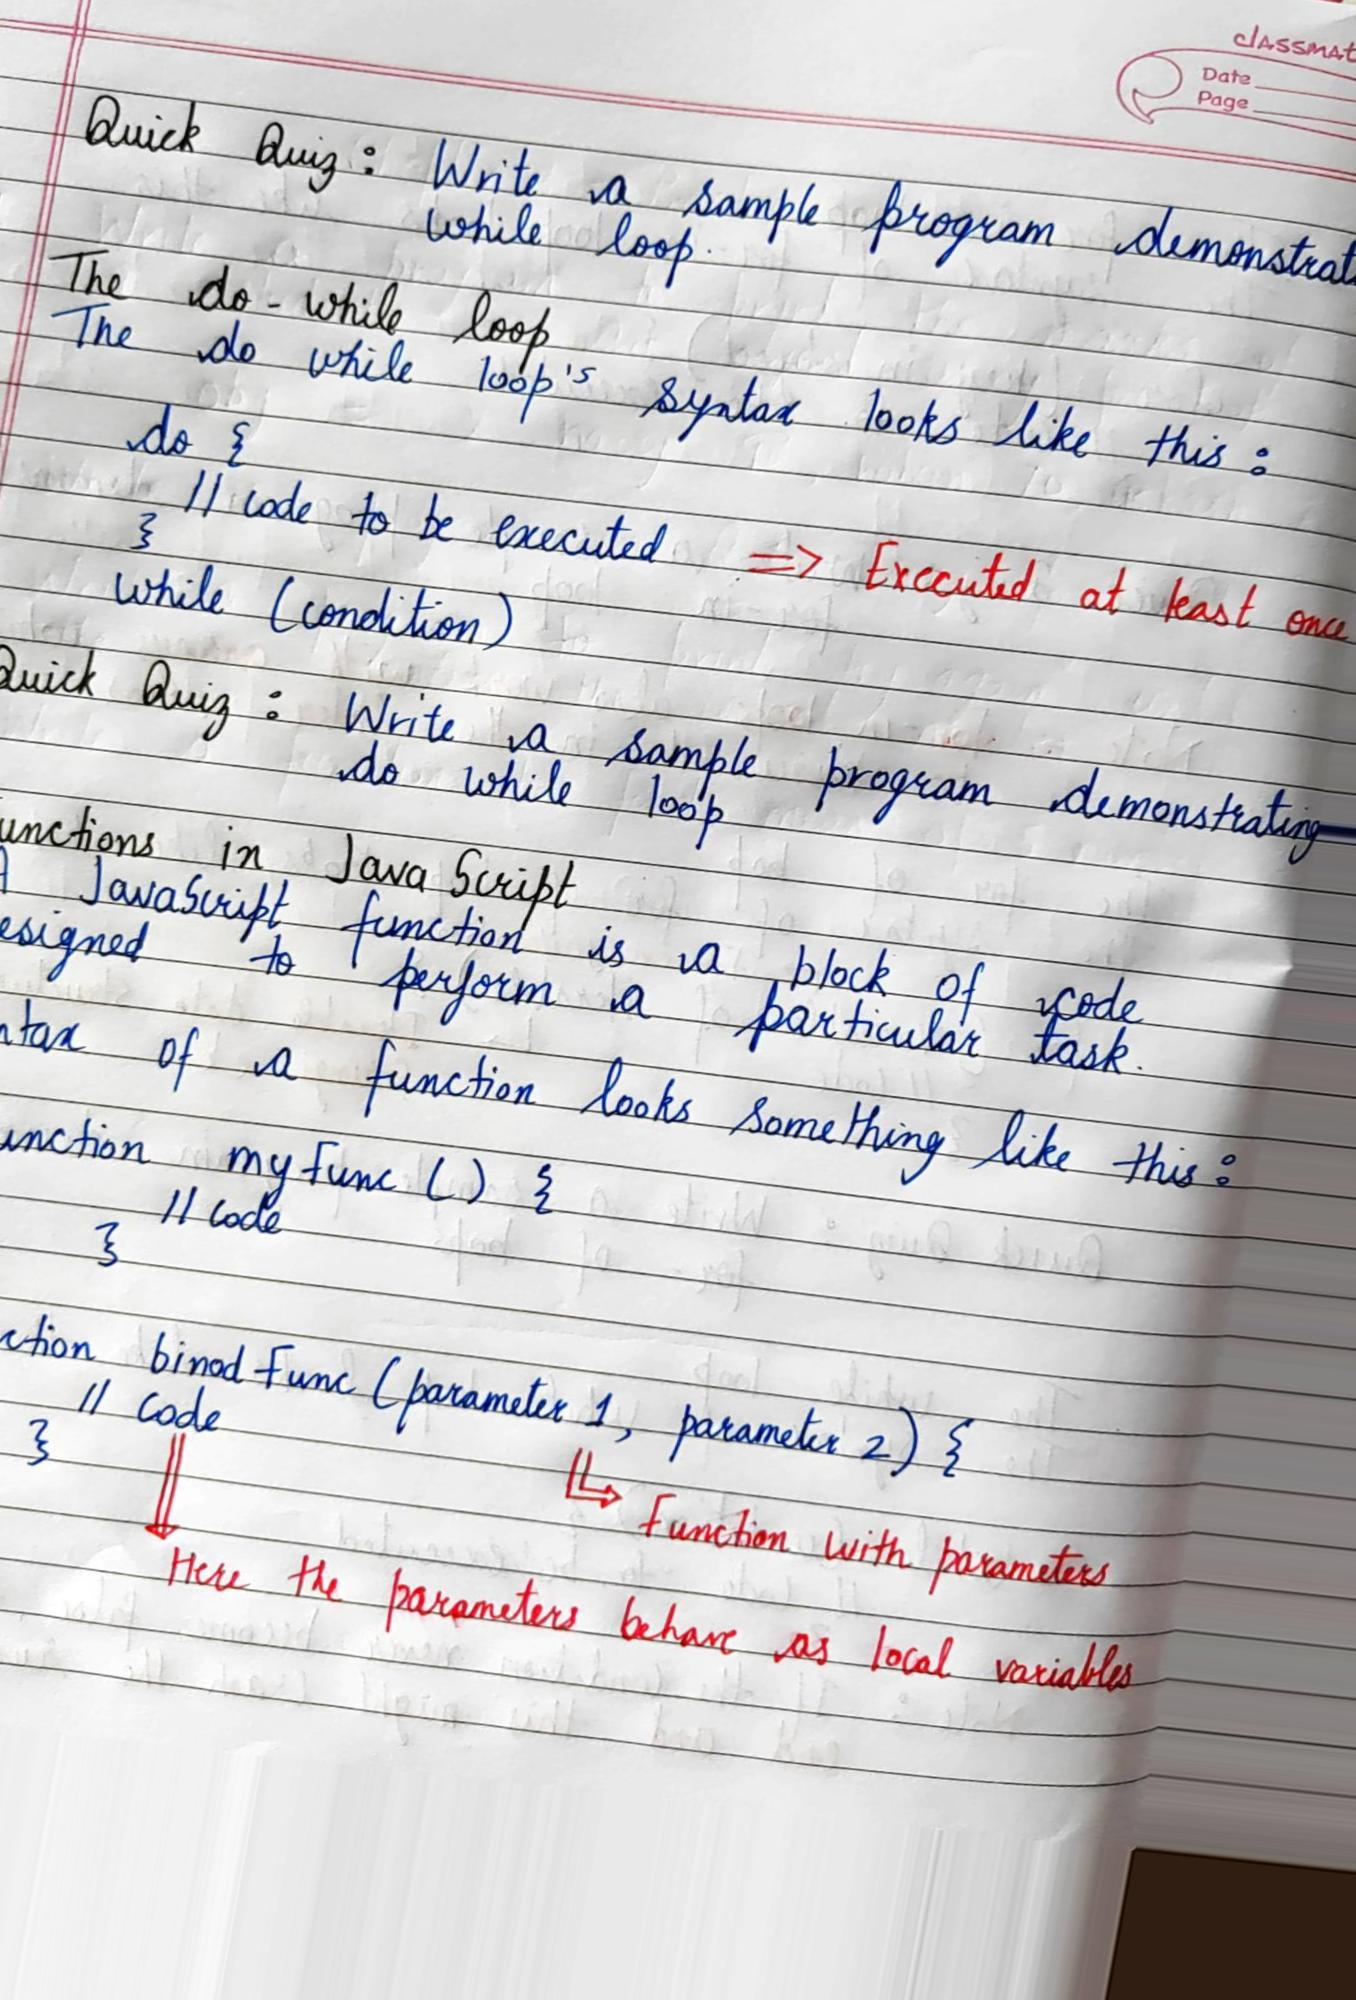 classmat
Date
Page
Quick Quiz : Write a sample program demonstrat
while loop.
The do-while loop
The do while loop's syntax looks like this :
do {
// code to be executed => Executed at least once
}
while (condition)
Quick Quiz : Write a sample program demonstrating
do while loop
unctions in JavaScript
A JavaScript function is a block of code
esigned to perform a particular task.
ntax of a function looks something like this :
unction myFunc () {
// code
}
ction binodFunc (parameter 1, parameter 2) {
// code
}
Function with parameters
Here the parameters behave as local variables